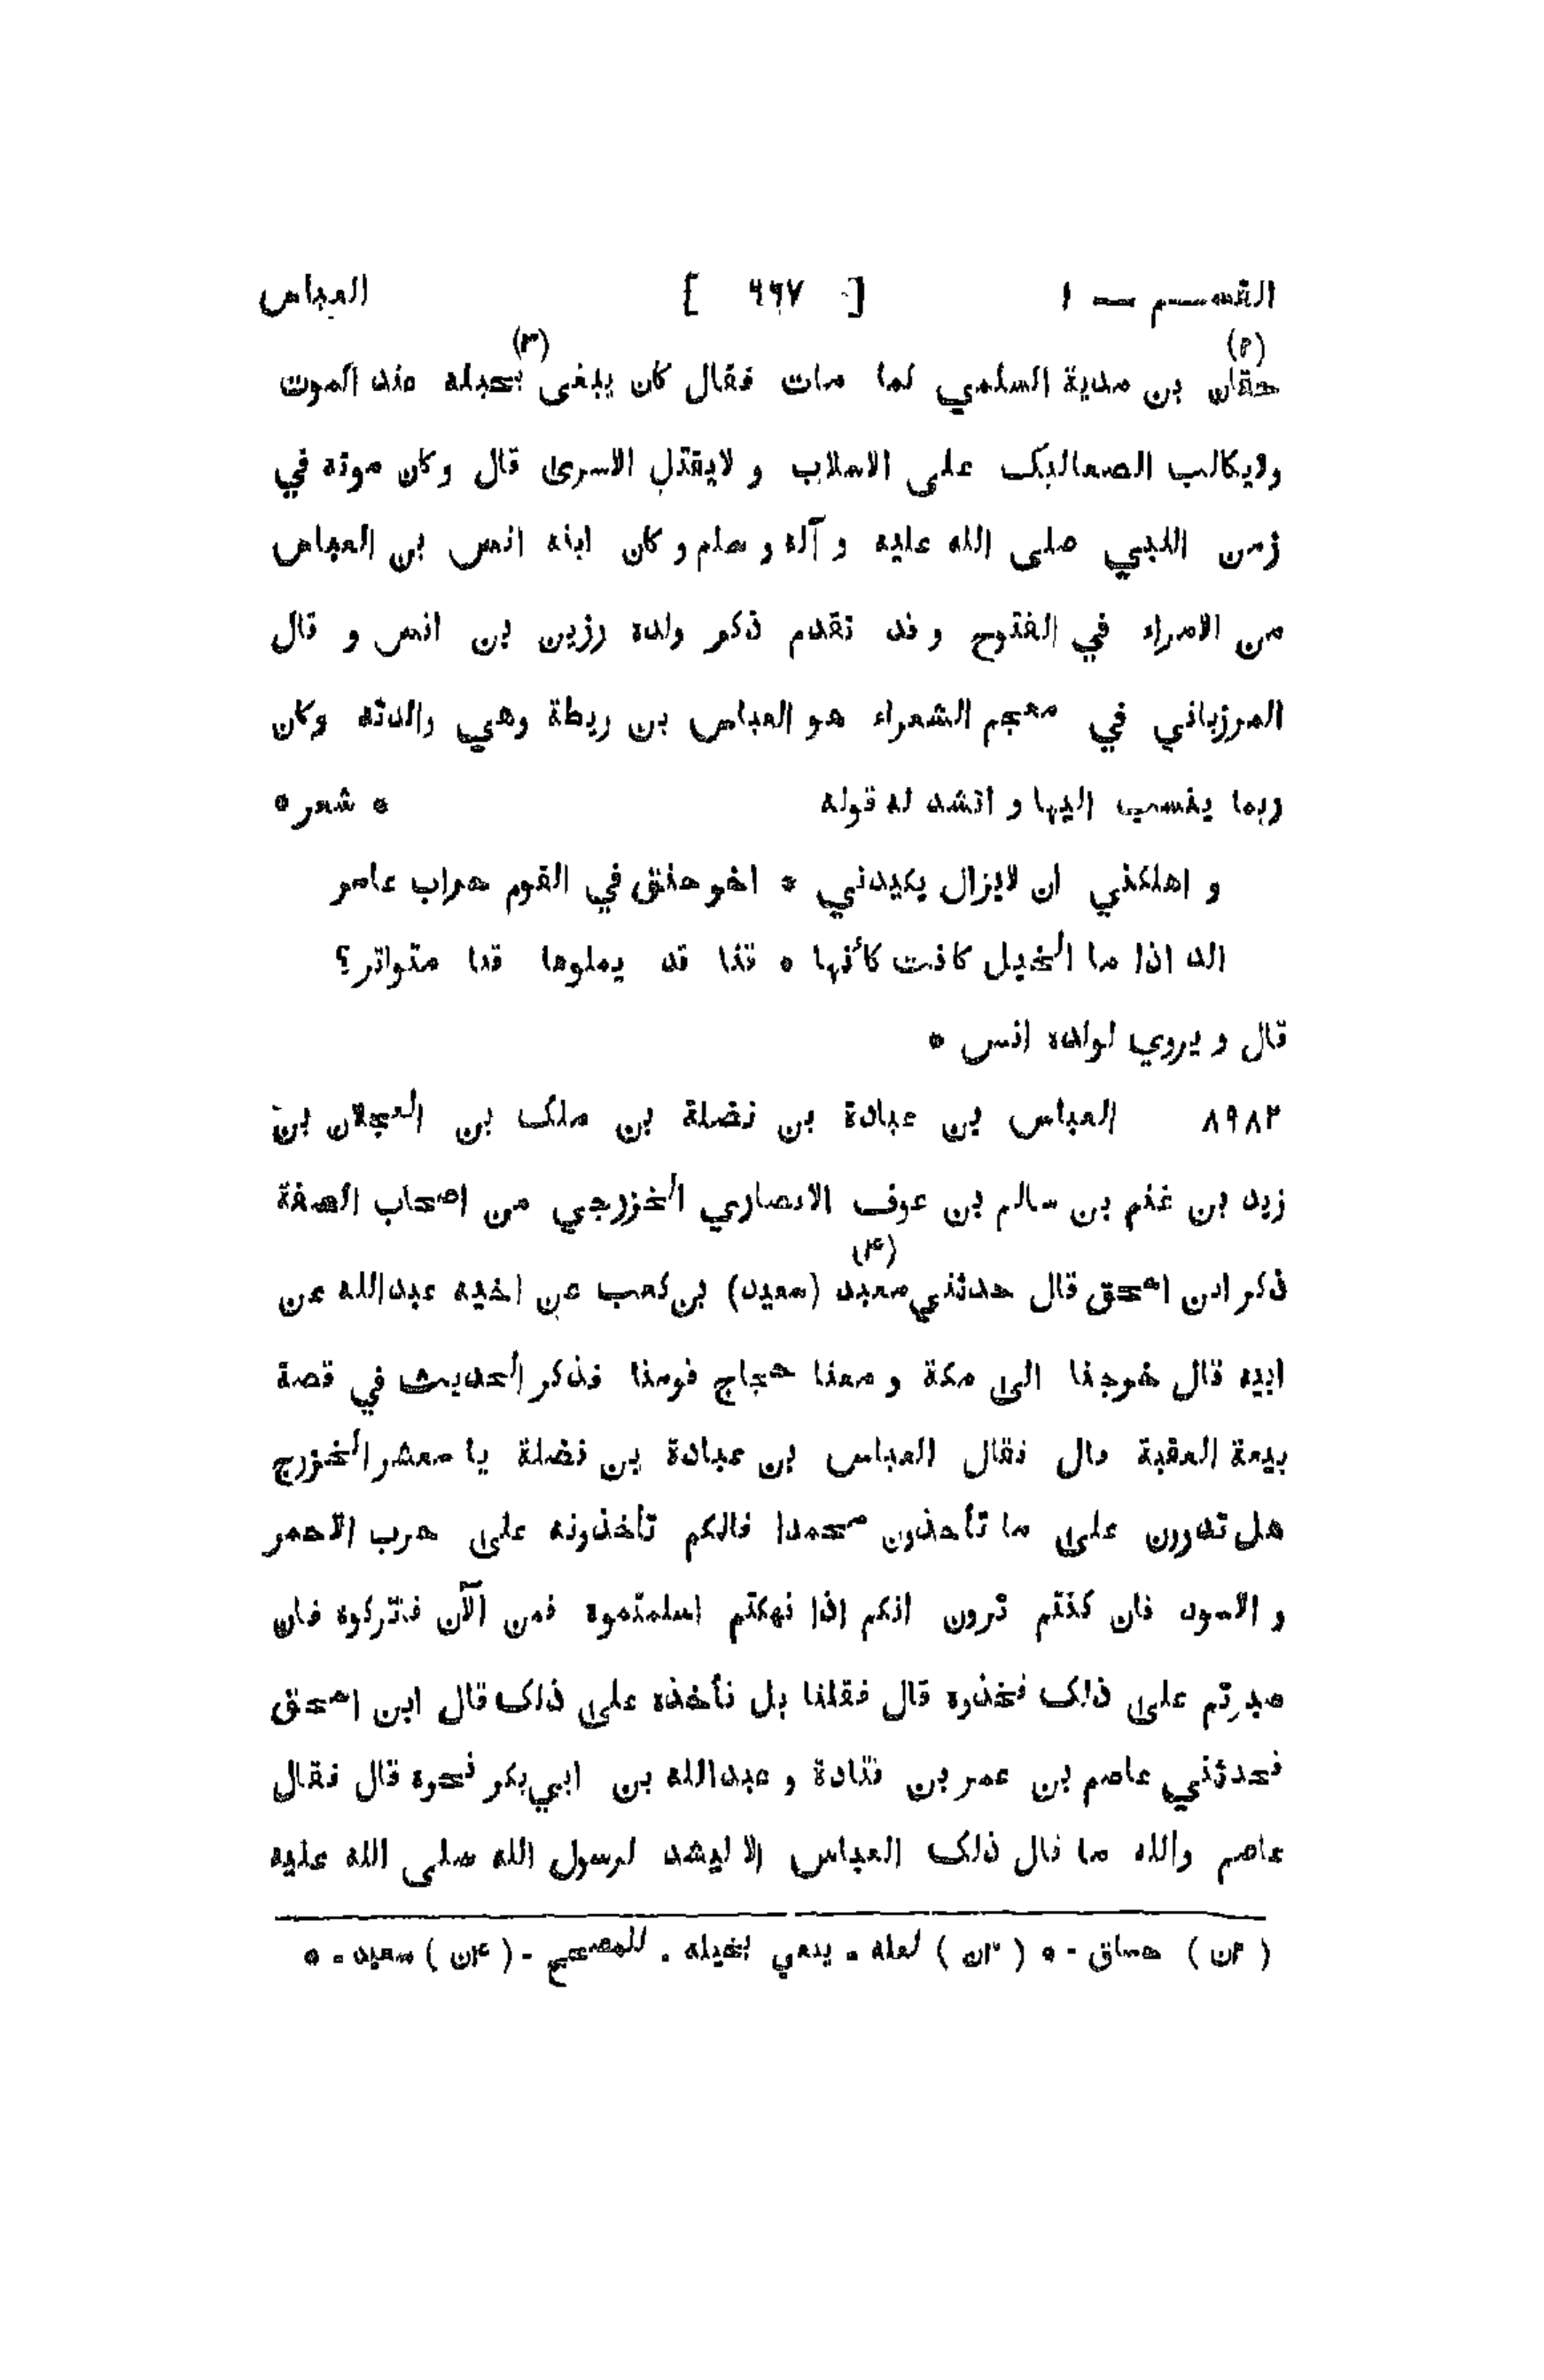 القسم — ١ [ ٩٦٧ ] العباس
(٢) (٣)
حقان بن مدية السلمي لما مات فقال كان يبغى بحبله عند الموت
ولايكالب الصعاليك على الاسلاب و لايقتل الاسرى قال وكان موته في
زمن النبي صلى الله عليه و آله و سلم و كان ابنه انس بن العباس
من الامراء في الفتوح و قد تقدم ذكر ولده رزين بن انس و قال
المرزباني في معجم الشعراء هو العباس بن ريطة وهي والدته وكان
ربما ينسب اليها و انشد له قوله * شعر *
و اهلكني ان لايزال يكيدني * اخو حنق في القوم حراب عامر
الد اذا ما الخيل كانت كأنها * قنا قد يعلوها قنا متواتر؟
قال و يروي لولده انس *
٨٩٨٢ العباس بن عبادة بن نضلة بن ملك بن العجلان بن
زيد بن غنم بن سالم بن عوف الانصاري الخزرجي من اصحاب الصفة
(٤)
ذكر ابن اسحق قال حدثني معبد (سعيد) بن كعب عن اخيه عبدالله عن
ابيه قال خرجنا الى مكة و معنا حجاج قومنا فذكر الحديث في قصة
بيعة العقبة قال فقال العباس بن عبادة بن نضلة يا معشر الخزرج
هل تدرون على ما تأخذون محمدا فالكم تأخذونه على حرب الاحمر
و الاسود فان كنتم ترون انكم اذا نهكتم اسلمتموه فمن الآن فاتركوه فان
صبرتم على ذلك فخذوه قال فقلنا بل نأخذه على ذلك قال ابن اسحق
فحدثني عاصم بن عمر بن قتادة و عبدالله بن ابي بكر نحوه قال فقال
عاصم والله ما قال ذلك العباس الا ليشد لرسول الله صلى الله عليه
( ٢ن ) حساق - * ( ٣ن ) لعله - يدعي بخيله . للمصحح - ( ٤ن ) سعيد - *